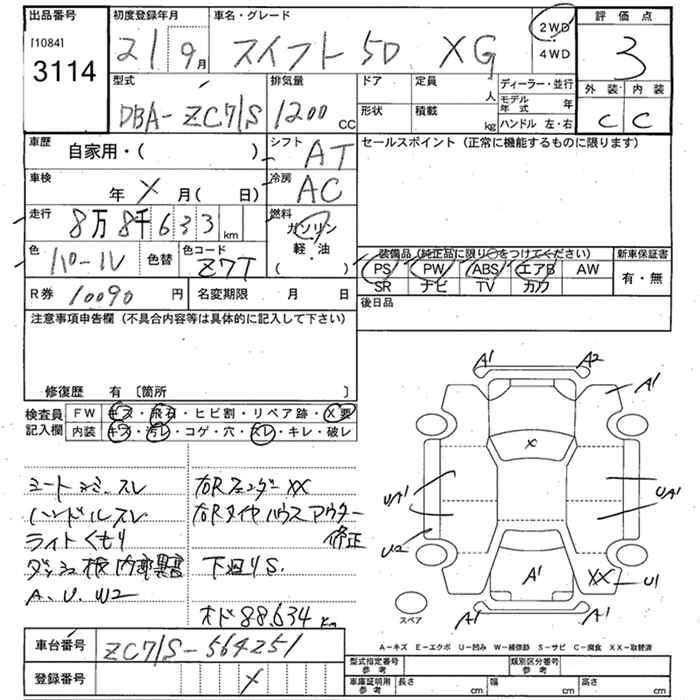 出品番号
[1084]
3114
初度登録年月
21 9月
車名・グレード
スイフト 5D XG
2WD
4WD
評価点
3
外装 内装
C C
型式
DBA-ZC71S
排気量
1200 CC
ドア
定員 人
形状
積載 kg
ディーラー・並行
モデル年式 年
ハンドル 左・右
車歴
自家用・( )
シフト
AT
セールスポイント(正常に機能するものに限ります)
車検
年 X 月( 日)
冷房
AC
走行
8万8千633 km
燃料
ガソリン
軽・油
( )
色
パール
色替
色コード
Z7T
装備品(純正品に限り○をつけてください)
新車保証書
PS PW ABS エアB AW
SR ナビ TV カワ
有・無
R券 10090 円
名変期限 月 日
後日品
注意事項申告欄(不具合内容等は具体的に記入して下さい)
修復歴 有 〔箇所 〕
検査員記入欄
FW キズ・飛石・ヒビ割・リペア跡・X要
内装 キズ・汚レ・コゲ・穴・スレ・キレ・破レ
シートシミ、スレ
ハンドルスレ
ライトくもり
ダッシュ板内部異音
A、U、W2
右Rフェンダー XX
右Rタイヤハウスアウター
修正
下廻りS.
オド88.634 km
A1 A2
A1
X
UA1 UA1
U2
A1
XX U1
A1 A1
スペア
A-キズ E-エクボ U-凹み W-補修跡 S-サビ C-腐食 XX-取替済
車台番号 ZC71S-564251
登録番号 X
型式指定番号 参考
類別区分番号 参考
車庫証明用 参考
長さ cm
幅 cm
高さ cm